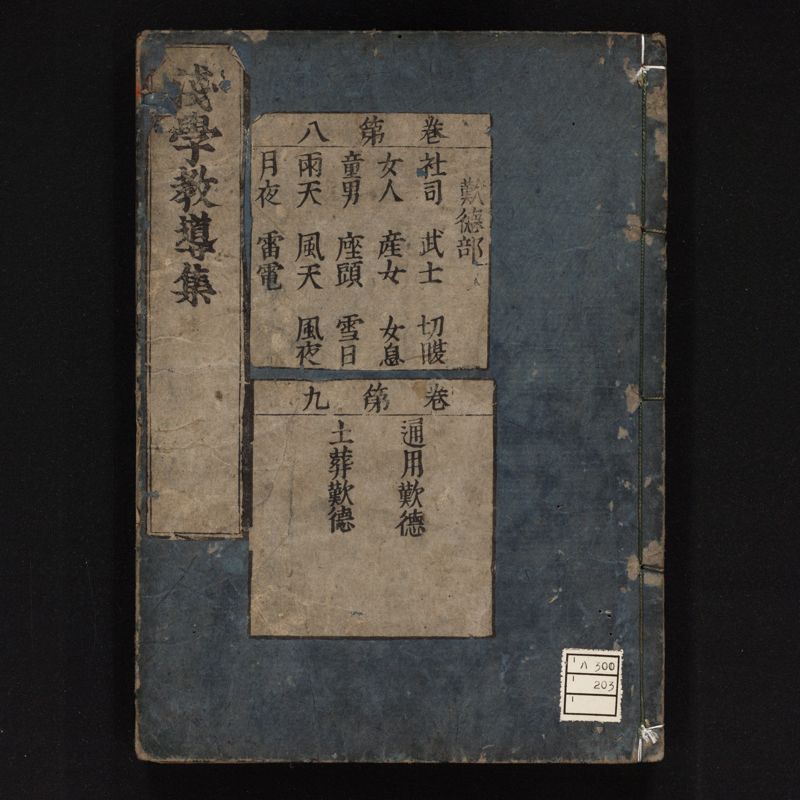 淺學教導集
卷第八
歎德部
社司 武士 切腹
女人 産女 女息
童男 座頭 雪日
雨天 風天 風夜
月夜 雷電
卷第九
通用歎德
土葬歎德
ハ 300
203